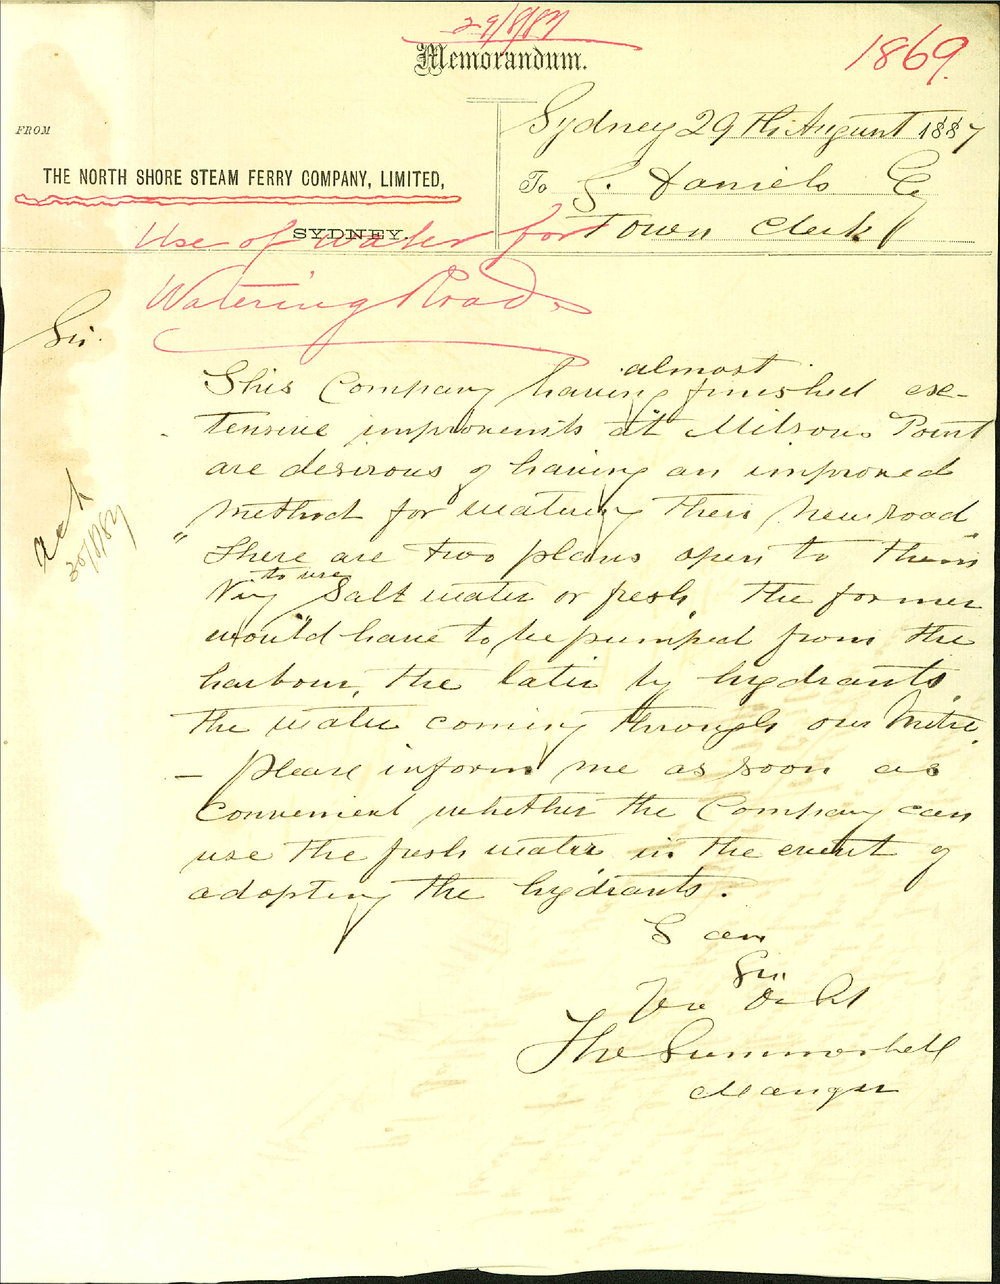 29/8/87
Memorandum.
1869.
Sydney 29th August 1887
FROM
THE NORTH SHORE STEAM FERRY COMPANY, LIMITED,
SYDNEY.
To S. Daniels Esq
Town Clerk
Use of water for
Watering Road
Sir.
This Company having almost finished ex-
tensive improvements at Milsons Point
are desirous of having an improved
method for watering their new road
"There are two plans open to them"
Viz to use Salt water or fresh, the former
would have to be pumped from the
harbour, the later by hydrants,
the water coming through our metre.
– Please inform me as soon as
convenient whether the Company can
use the fresh water in the event of
adopting the hydrants.
ack
30/8/87
I am
Sir
You Ob St
Tho Summerbell
Manager